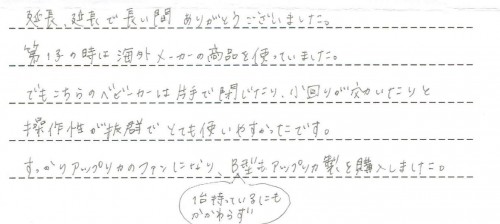 延長、延長で長い間 ありがとうございました。
第1子の時は海外メーカーの商品を使っていました。
でもこちらのベビーカーは片手で閉じたり、小回りが効いたりと
操作性が抜群でとても使いやすかったです。
すっかりアップリカのファンになり、B型もアップリカ製を購入しました。
1台持っているにも
かかわらず